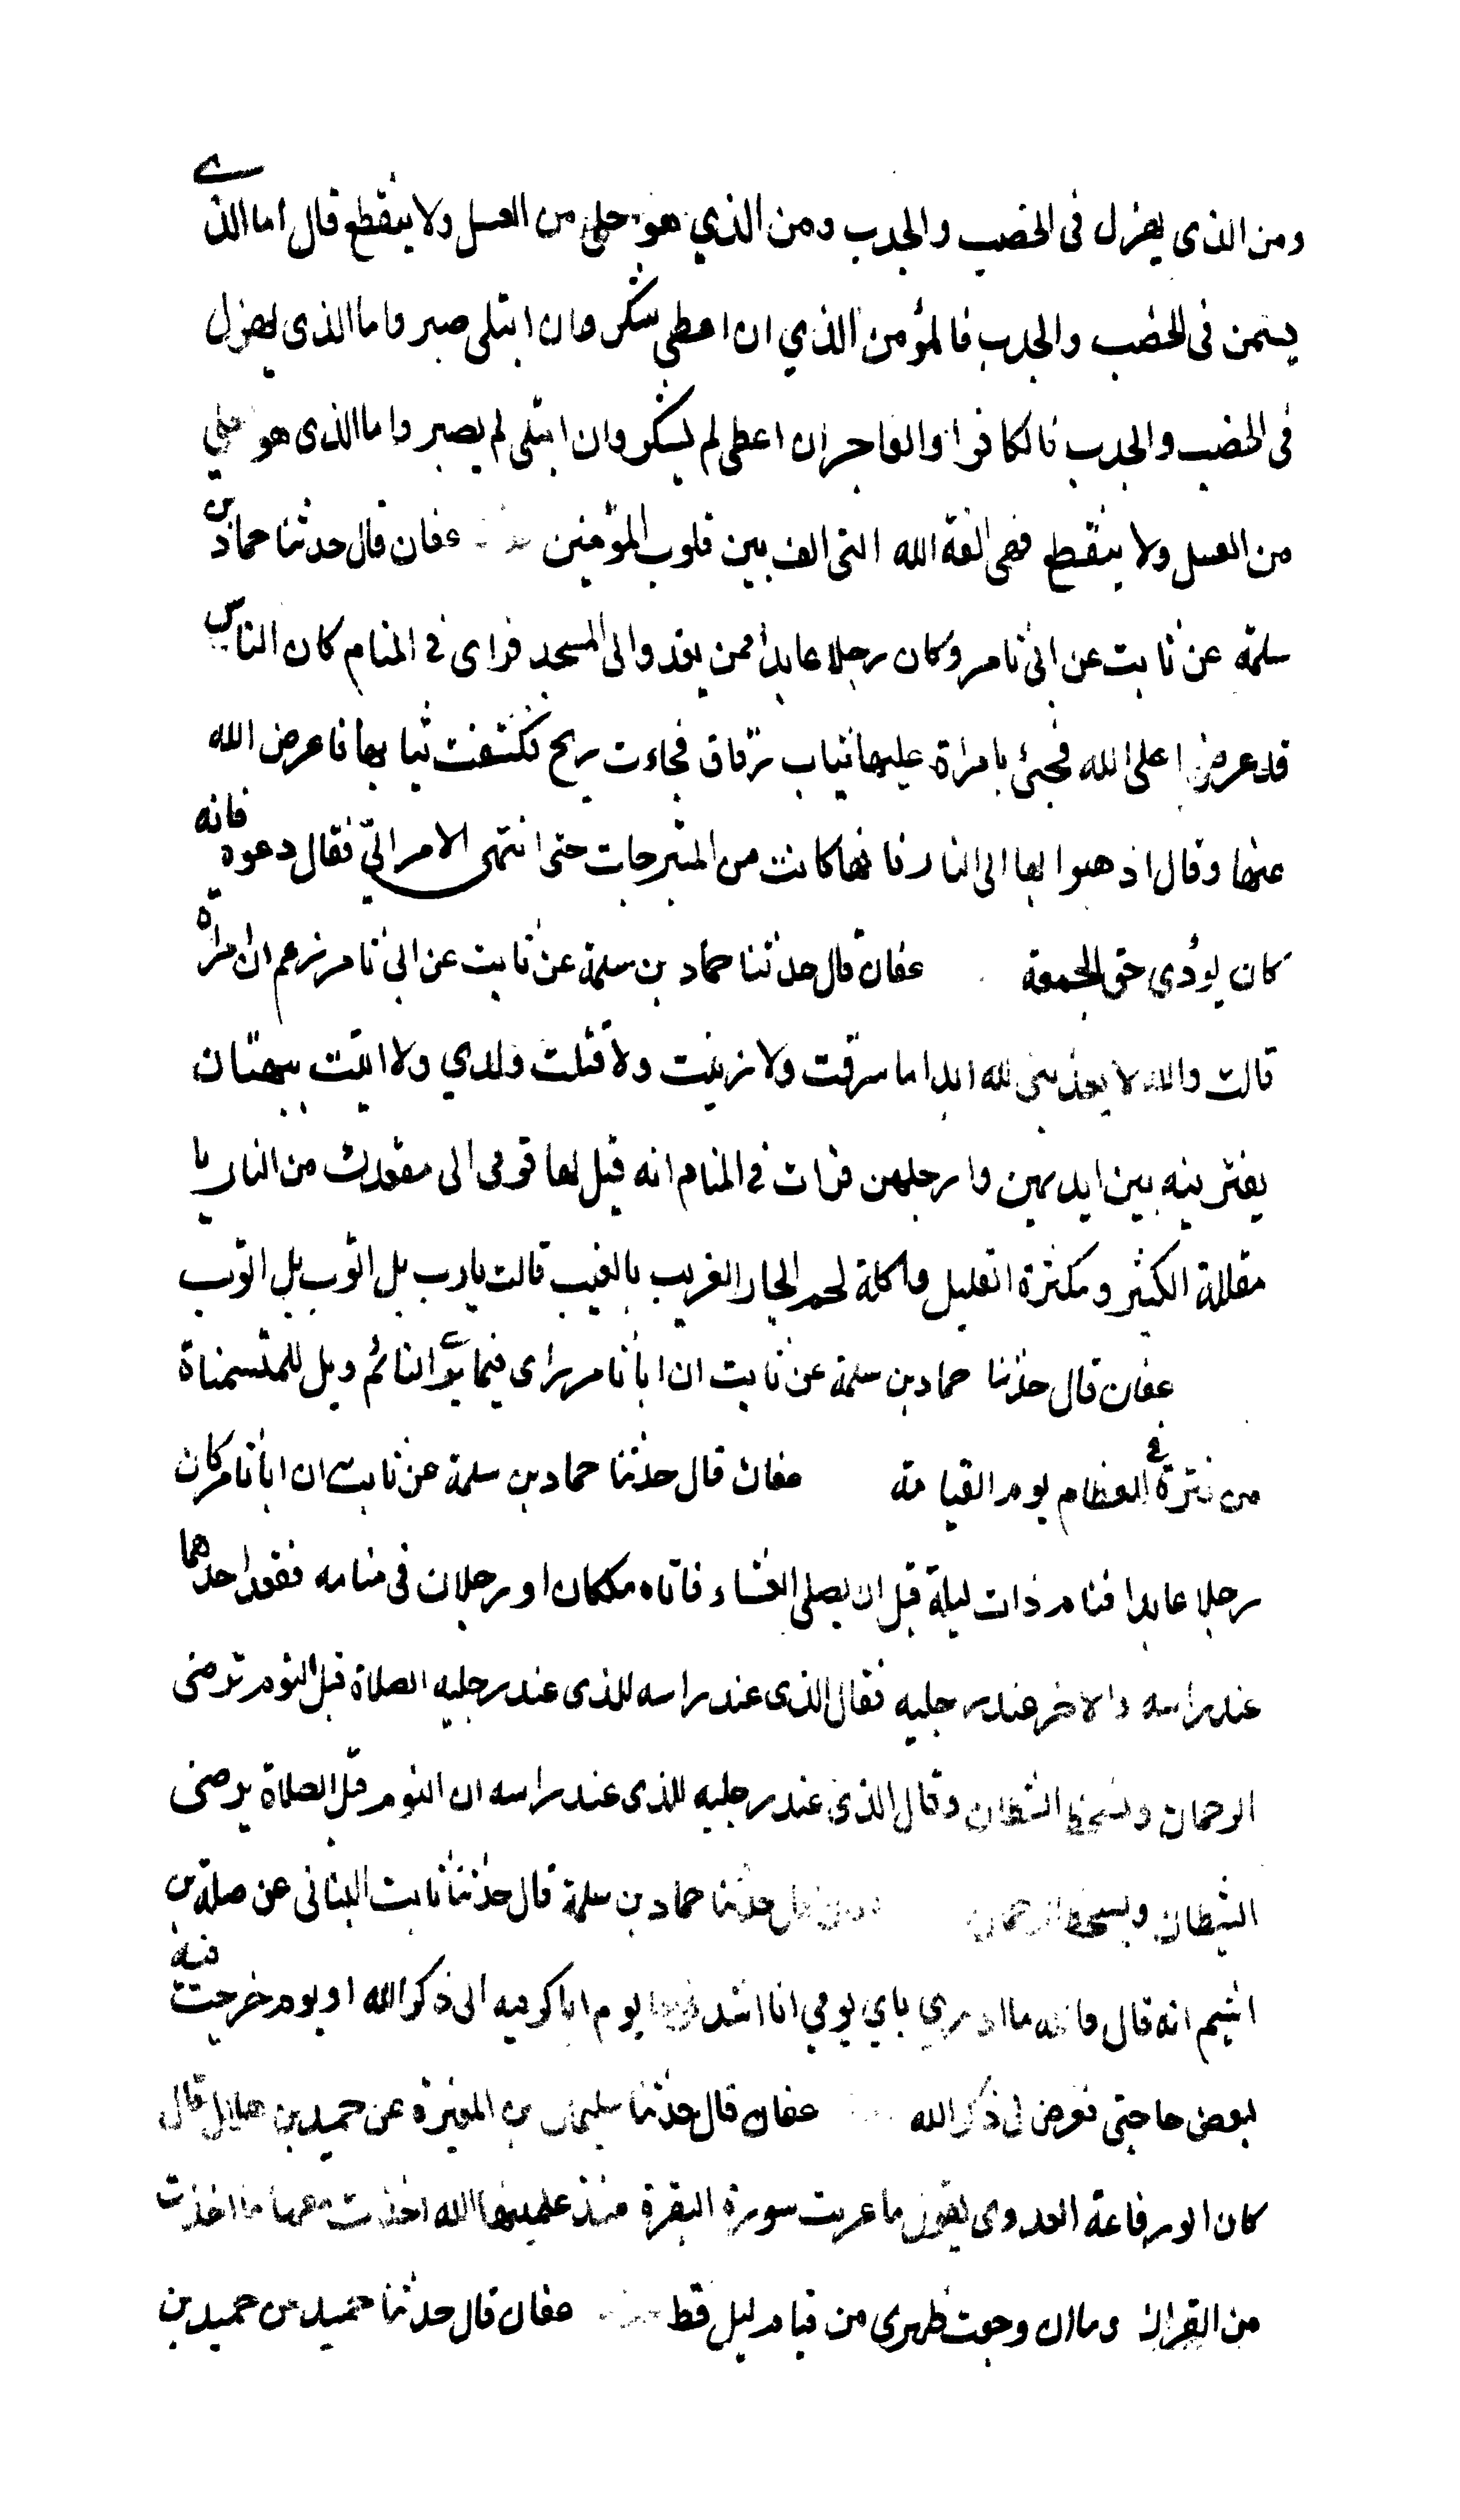 ومن الذى يهزل فى الخصب والجدب ومن الذي هو احلى من العسل ولا ينقطع قال اما الذي
يسمن فى الخصب والجدب فالمؤمن الذي ان اعطى شكر وان ابتلى صبر واما الذى يهزل
فى الخصب والجدب فالكافر او الفاجر ان اعطى لم يشكر وان ابتلى لم يصبر واما الذى هو احلى
من العسل ولا ينقطع فهى الفة الله التى الف بين قلوب المؤمنين عفان قال حدثنا حماد بن
سلمة عن ثابت عن ابى ثامر وكان رجلا عابدا ممن يغدو الى المسجد فراى فى المنام كان الناس
قد عرضوا على الله فجئ بامراة عليها ثياب رقاق فجاءت ريح فكشفت ثيابها فاعرض الله
عنها وقال اذهبوا بها الى النار فانها كانت من المتبرجات حتى انتهى الامر الي فقال دعوه فانه
كان يؤدى حق الجمعة عفان قال حدثنا حماد بن سلمة عن ثابت عن ابى ثامر زعم ان امراة
قالت والله لا يعذبنى الله ابدا ما سرقت ولا زنيت ولا قتلت ولدي ولا اتيت ببهتان
يفترينه بين ايديهن وارجلهن فرات فى المنام انه قيل لها قومى الى مقعدك من النار يا
مقللة الكثير ومكثرة القليل واكلة لحم الجار الغريب بالغيب قالت يارب بل اتوب بل اتوب
عفان قال حدثنا حماد بن سلمة عن ثابت ان ابا ثامر راى فيما يرى النائم ويل للمتسمنات
من فترة فى العظام يوم القيامة عفان قال حدثنا حماد بن سلمة عن ثابت ان ابا ثامر كان
رجلا عابدا فنام ذات ليلة قبل ان يصلى العشاء فاتاه ملكان او رجلان فى منامه فقعد احدهما
عند راسه والاخر عند رجليه فقال الذى عند راسه للذى عند رجليه الصلاة قبل النوم ترضى
الرحمان وتسخط الشيطان وقال الذى عند رجليه للذى عند راسه ان النوم قبل الصلاة يرضى
الشيطان ويسخط الرحمان قال حدثنا حماد بن سلمة قال حدثنا ثابت البنانى عن صلة بن
اشيم انه قال والله ما ادري باي يومي انا اشد فرحا يوم اباكر فيه الى ذكر الله او يوم خرجت فيه
لبعض حاجتى فعرض لى ذكر الله عفان قال حدثنا سليمان بن المغيرة عن حميد بن هلال قال
كان ابو رفاعة العدوى يقول ما عزبت سورة البقرة منذ علمنيها الله اخذت معها ما اخذت
من القران وما ان وجعت ظهرى من قيام ليل قط عفان قال حدثنا حميد عن حميد بن